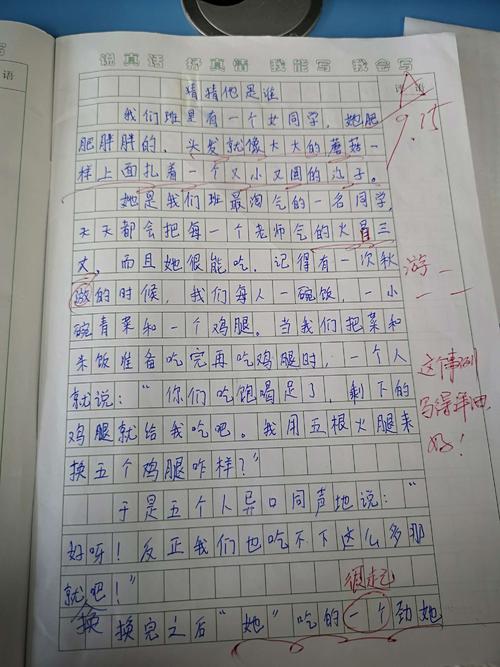 说真话 抒真情 我能写 我会写
写
语
猜猜他是谁
我们班里有一个女同学，她肥
9.15
肥胖胖的，头发就像大大的蘑菇一
样上面扎着一个又小又圆的丸子。
她是我们班最淘气的一名同学，
天天都会把每一个老师气的火冒三
丈，而且她很能吃。记得有一次秋
游
做的时候，我们每人一碗饭，一小
碗青菜和一个鸡腿。当我们把菜和
米饭准备吃完再吃鸡腿时，一个人
这个事例
就说：“你们吃饱喝足了，剩下的
写得
鸡腿就给我吃吧。我用五根火腿来
好！
换五个鸡腿咋样？”
于是五个人异口同声地说：“
好呀！反正我们也吃不下这么多那
就吧！”
换
换完之后“她”吃的一个劲她